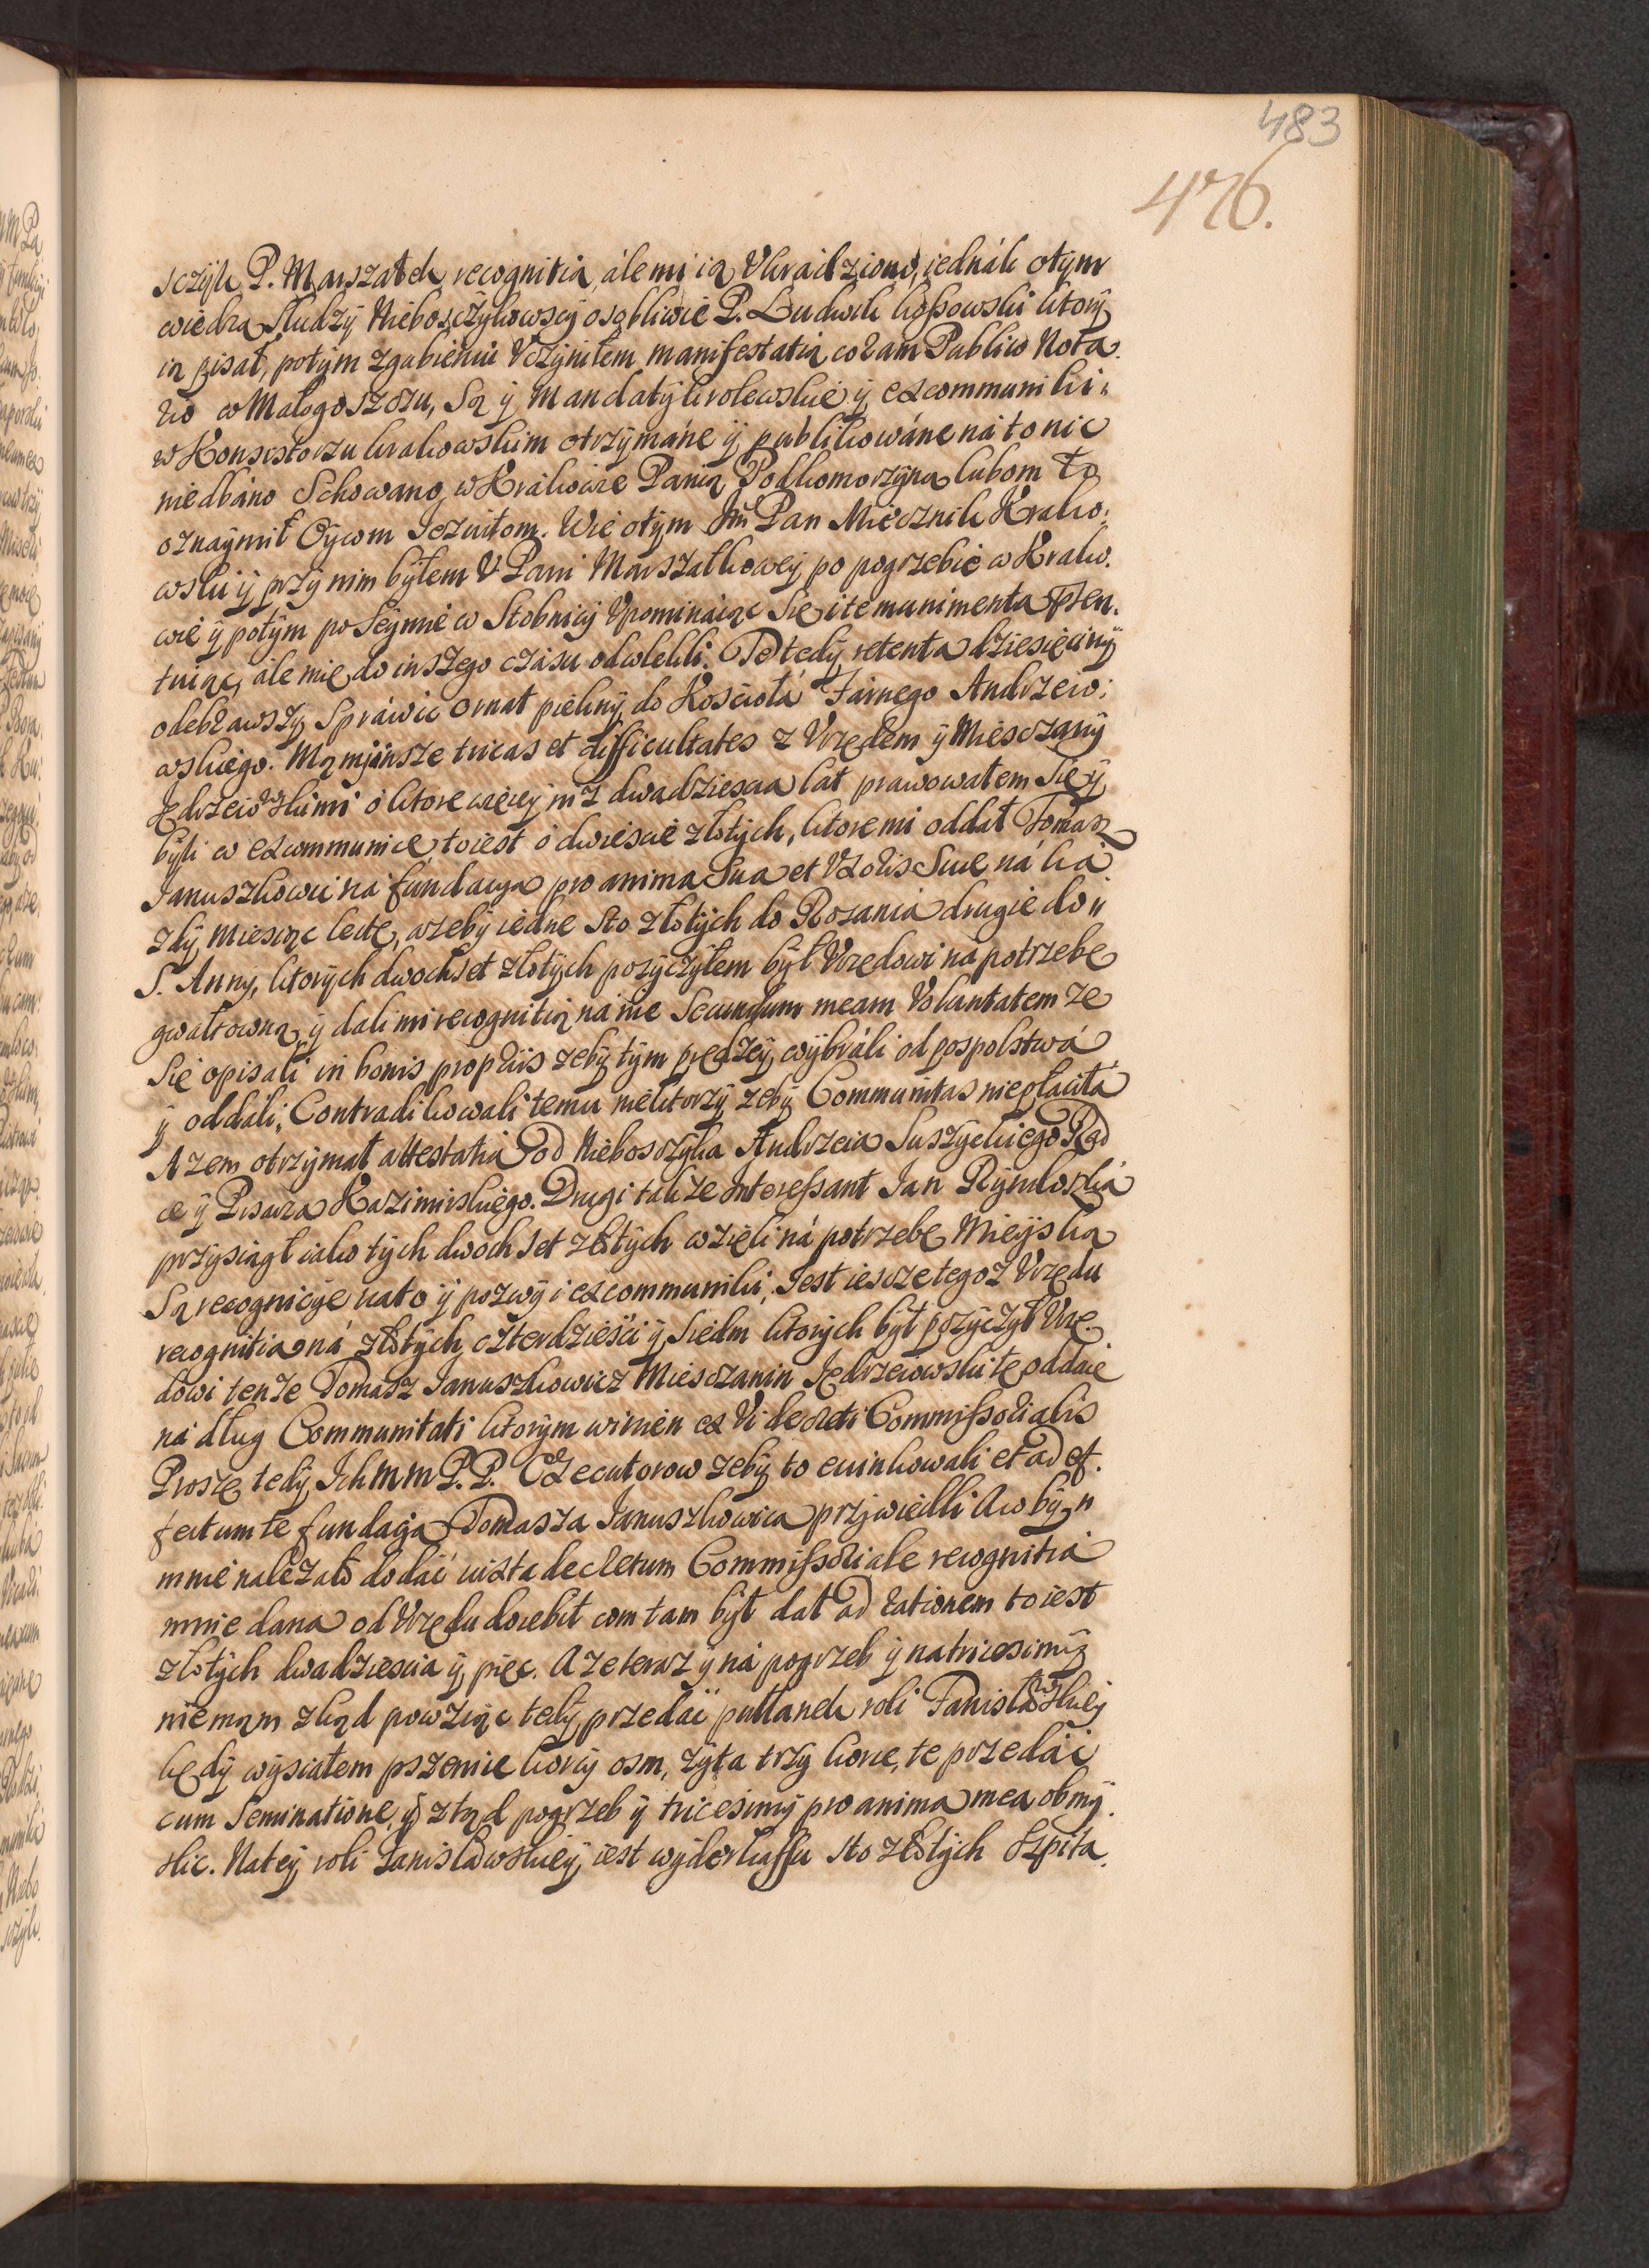 483
476.
sczyk P. Marszałek recognitią, ále mi ią Vkradziono, iednák otym
wiedzą Słudzy Nieboszczykowscy osobliwie P. Ludwik kossowski ktory
ią pisał, potym zgubieniu Vczyniłem manifestatią coram Publico Nota.
rio w Małogoszczu, Są ÿ Mandaty krolewskie ÿ excommuniki
w Konsistorzu krakowskim otrzymáne ÿ publikowáne ná to nic
niedbáno Schowano w Krákowie Panią Podkomorzyną lubom to
oznaymił Oycom Jezuitom. Wie otym Jm Pan Miecznik Krako.
wski ÿ przy nim byłem V Pani Marszałkowey po pogrzebie w Krako.
wie ÿ potym po Seymie w Stobnicy Vpomináiąc Się i te munimenta Pręn.
tuiąc, ále mię do inszego czásu odwlekli. Te tedy retenta dziesięciny
odebrawszy Spráwić ornat piekny do Kościołá Fárnego Andrzeio.
wskiego. Mam inńsze tricas et difficultates z Vrzędem ÿ Miesczany
Jędrzeiowskimi o ktore więcey niż dwadziescia lat prawowałem Się ÿ
byli w excommunice to iest o dwiescie złotych, ktore mi oddał Tomasz
Januszkowic na fundacyą pro anima Sua et Vxoris Suæ ná ká.
żdy miesiąc lectę, ażeby iedne Sto złotych do Rozania drugie do
S. Anny, ktorych dwochset złotych pozyczyłem był Vrzędowi ná potrzebę
gwałtowną ÿ dali mi recognitią ná nie Secundum meam Voluntatem że
Się opisali in bonis propriis żeby tym prędzey wybráli od pospolstwá
ÿ oddáli, Contradikowali temu niektorzy żeby Communitas niepłaciłá
A zem otrzymał attestatią od Nieboszczyka Andrzeia Suszyckiego Rad
ce ÿ Pisarza Kazimirskiego. Drugi także Interessant Jan Rymkoszká
przysiągł iako tych dwoch set złotych wzięli ná potrzebę Mieyską
Są recognicye na to ÿ pozwy i excommuniki, Jest iescze tegoż Vrzędu
recognitia ná złotych czterdzieści ÿ Siedm ktorych był pozyczył Vrzę.
dowi tenże Tomasz Januszkowicz Miesczanin Jędrzeiowski te oddaie
ná dług Communitati ktorym winien ex Vi decreti Commissorialis
Proszę tedy Ich MM P.P. Executorow żeby to ewinkowali et ad ef.
fectum te fundacyą Tomasza Januszkowica przywiedli A co by n
mnie należało dodáć iuxta decretum Commissoriale recognitia
mnie dana od Vrzędu dociebie com tam był dał ad rationem to iest
złotych dwadziescia ÿ pięc. A ze teraz ÿ ná pogrzeb ÿ na tricesimy
nie mąm zkąd powziąc tedy przedáć pułłanek roli Tanisławskiey
kędy wysiałem pszenice korcy osm, żyta trzy korce, te przedáć
cum Seminatione, ÿ ztąd pogrzeb ÿ tricesimy pro anima mea obmy.
slic. Na tey roli Tanisławskiey iest wyderkaffu sto złotych Szpita.